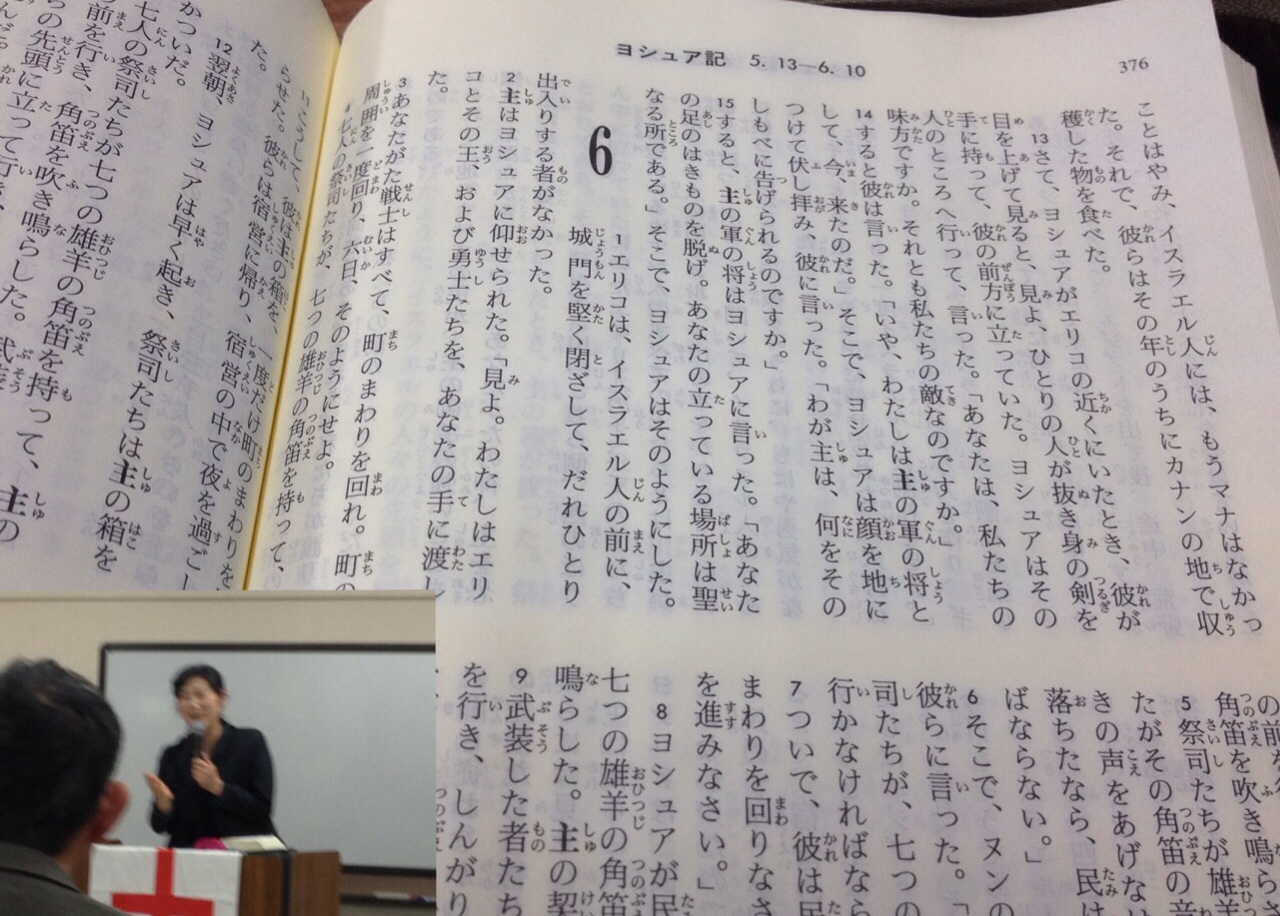 ヨシュア記 5.13—6.10
376
ことはやみ、イスラエル人には、もうマナはなかっ
た。それで、彼らはその年のうちにカナンの地で収
穫した物を食べた。
13さて、ヨシュアがエリコの近くにいたとき、彼が
目を上げて見ると、見よ、ひとりの人が抜き身の剣を
手に持って、彼の前方に立っていた。ヨシュアはその
人のところへ行って、言った。「あなたは、私たちの
味方ですか。それとも私たちの敵なのですか。」
14すると彼は言った。「いや、わたしは主の軍の将と
して、今、来たのだ。」そこで、ヨシュアは顔を地に
つけて伏し拝み、彼に言った。「わが主は、何をその
しもべに告げられるのですか。」
15すると、主の軍の将はヨシュアに言った。「あなた
の足のはきものを脱げ。あなたの立っている場所は聖
なる所である。」そこで、ヨシュアはそのようにした。
6
1エリコは、イスラエル人の前に、
城門を堅く閉ざして、だれひとり
出入りする者がなかった。
2主はヨシュアに仰せられた。「見よ。わたしはエリ
コとその王、および勇士たちを、あなたの手に渡し
た。
3あなたがた戦士はすべて、町のまわりを回れ。町の
周囲を一度回り、六日、そのようにせよ。
4七人の祭司たちが、七つの雄羊の角笛を持って、
の前を
角笛を吹き鳴らさ
5祭司たちが雄羊
たがその角笛の音
きの声をあげな
落ちたなら、民は
ばならない。」
6そこで、ヌンの
彼らに言った。「
司たちが、七つの
行かなければなら
7ついで、彼は民
まわりを回りなさ
を進みなさい。」
8ヨシュアが民
七つの雄羊の角笛
鳴らした。主の契
9武装した者たち
を行き、しんがり
らせた。
11こうして、彼は主の箱を、一度だけ町のまわりを
彼らは宿営に帰り、宿営の中で夜を過ごし
た。
12翌朝、ヨシュアは早く起き、祭司たちは主の箱を
かついだ。
七人の祭司たちが七つの雄羊の角笛を持って、主の
の前を行き、角笛を吹き鳴らした。
らの先頭に立って行き、